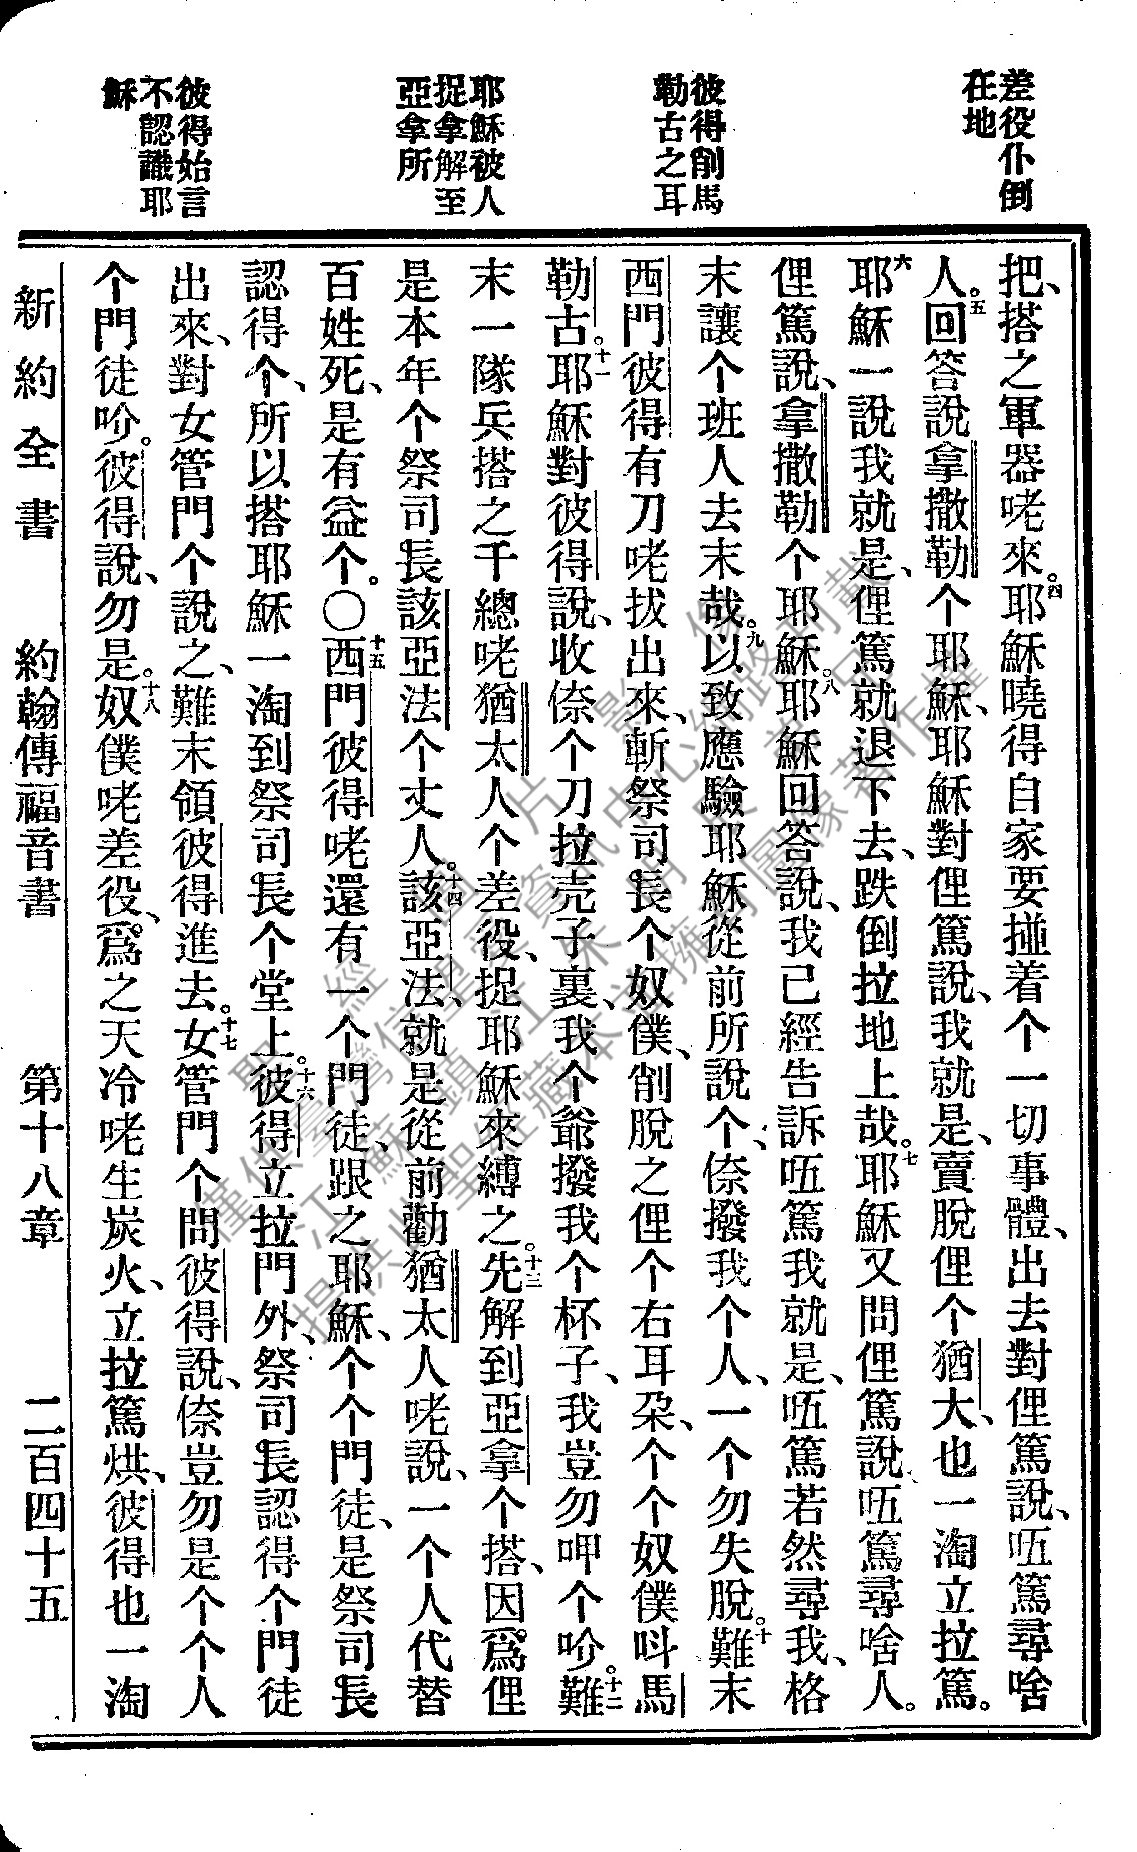 差役仆倒
在地
彼得削馬
勒古之耳
耶穌被人
捉拿解至
亞拿所
彼得始言
不認識耶
穌
把、搭之軍器咾來。四耶穌曉得自家要掽着个一切事體、出去對俚篤說、𠲎篤尋啥
人。五回答說拿撒勒个耶穌、耶穌對俚篤說、我就是、賣脫俚个猶大、也一淘立拉篤。
六耶穌一說我就是、俚篤就退下去、跌倒拉地上哉。七耶穌又問俚篤說、𠲎篤尋啥人。
俚篤說、拿撒勒个耶穌。八耶穌回答說、我已經告訴𠲎篤我就是、𠲎篤若然尋我、格
末讓个班人去末哉。九以致應驗耶穌從前所說个、倷撥我个人、一个勿失脫。十難末
西門彼得有刀咾拔出來、斬祭司長个奴僕、削脫之俚个右耳朶、个个奴僕呌馬
勒古。十一耶穌對彼得說、收倷个刀拉壳子裏、我个爺撥我个杯子、我豈勿呷个吤。十二難
末一隊兵搭之千總咾猶太人个差役、捉耶穌來縛之。十三先解到亞拿个搭、因爲俚
是本年个祭司長該亞法个丈人。十四該亞法、就是從前勸猶太人咾說、一个人代替
百姓死、是有益个。〇十五西門彼得咾還有一个門徒、跟之耶穌、个个門徒、是祭司長
認得个、所以搭耶穌一淘到祭司長个堂上。十六彼得立拉門外、祭司長認得个門徒
出來、對女管門个說之、難末領彼得進去。十七女管門个問彼得說、倷豈勿是个个人
个門徒吤。彼得說、勿是。十八奴僕咾差役、爲之天冷咾生炭火、立拉篤烘、彼得也一淘
新約全書　約翰傳福音書　第十八章　二百四十五
聖經圖片影像
僅供臺灣信望愛資訊中心網路刊載
江蘇鎮江朱明民弟兄
提供此聖經藏本並擁有圖像著作權